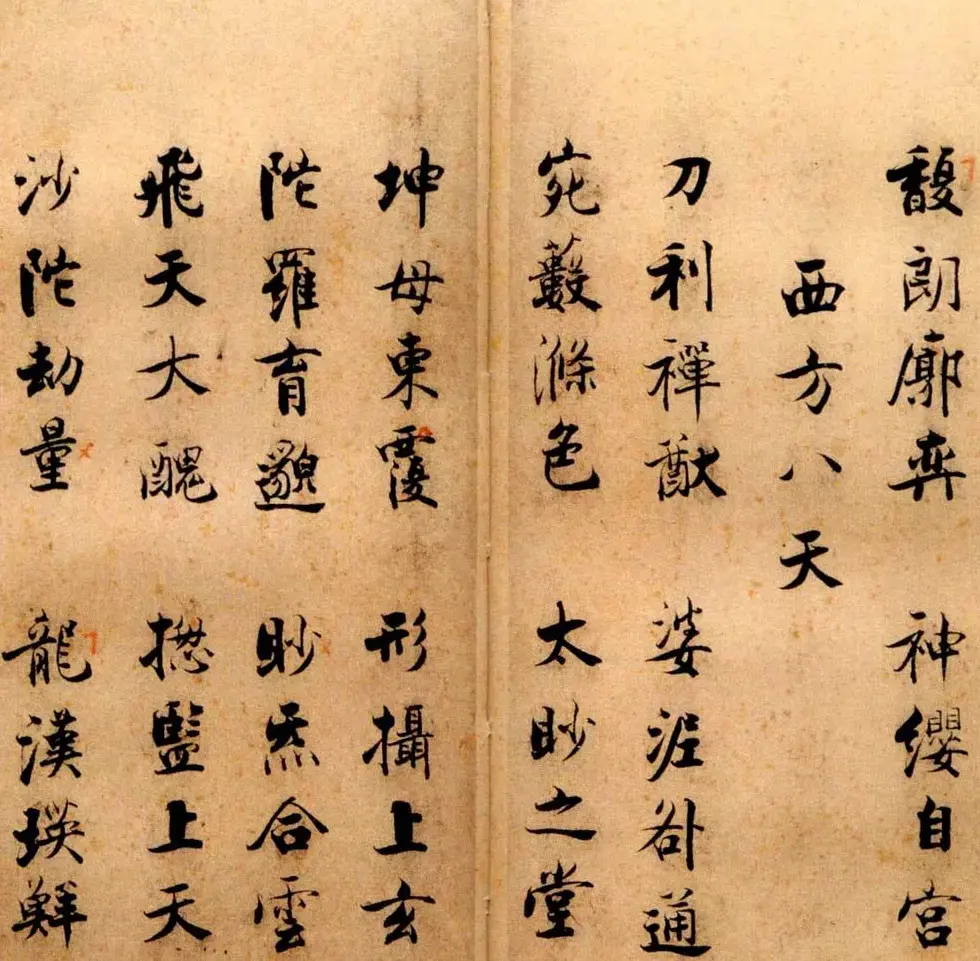 馥朗廓奕 神纓自宮
西方八天
刀利禪猷 婆泥咎通
宛藪滌色 太眇之堂
坤母東覆 形攝上玄
陀羅育邈 眇炁合雲
飛天大醜 摠監上天
沙陀劫量 龍漢瑛鮮